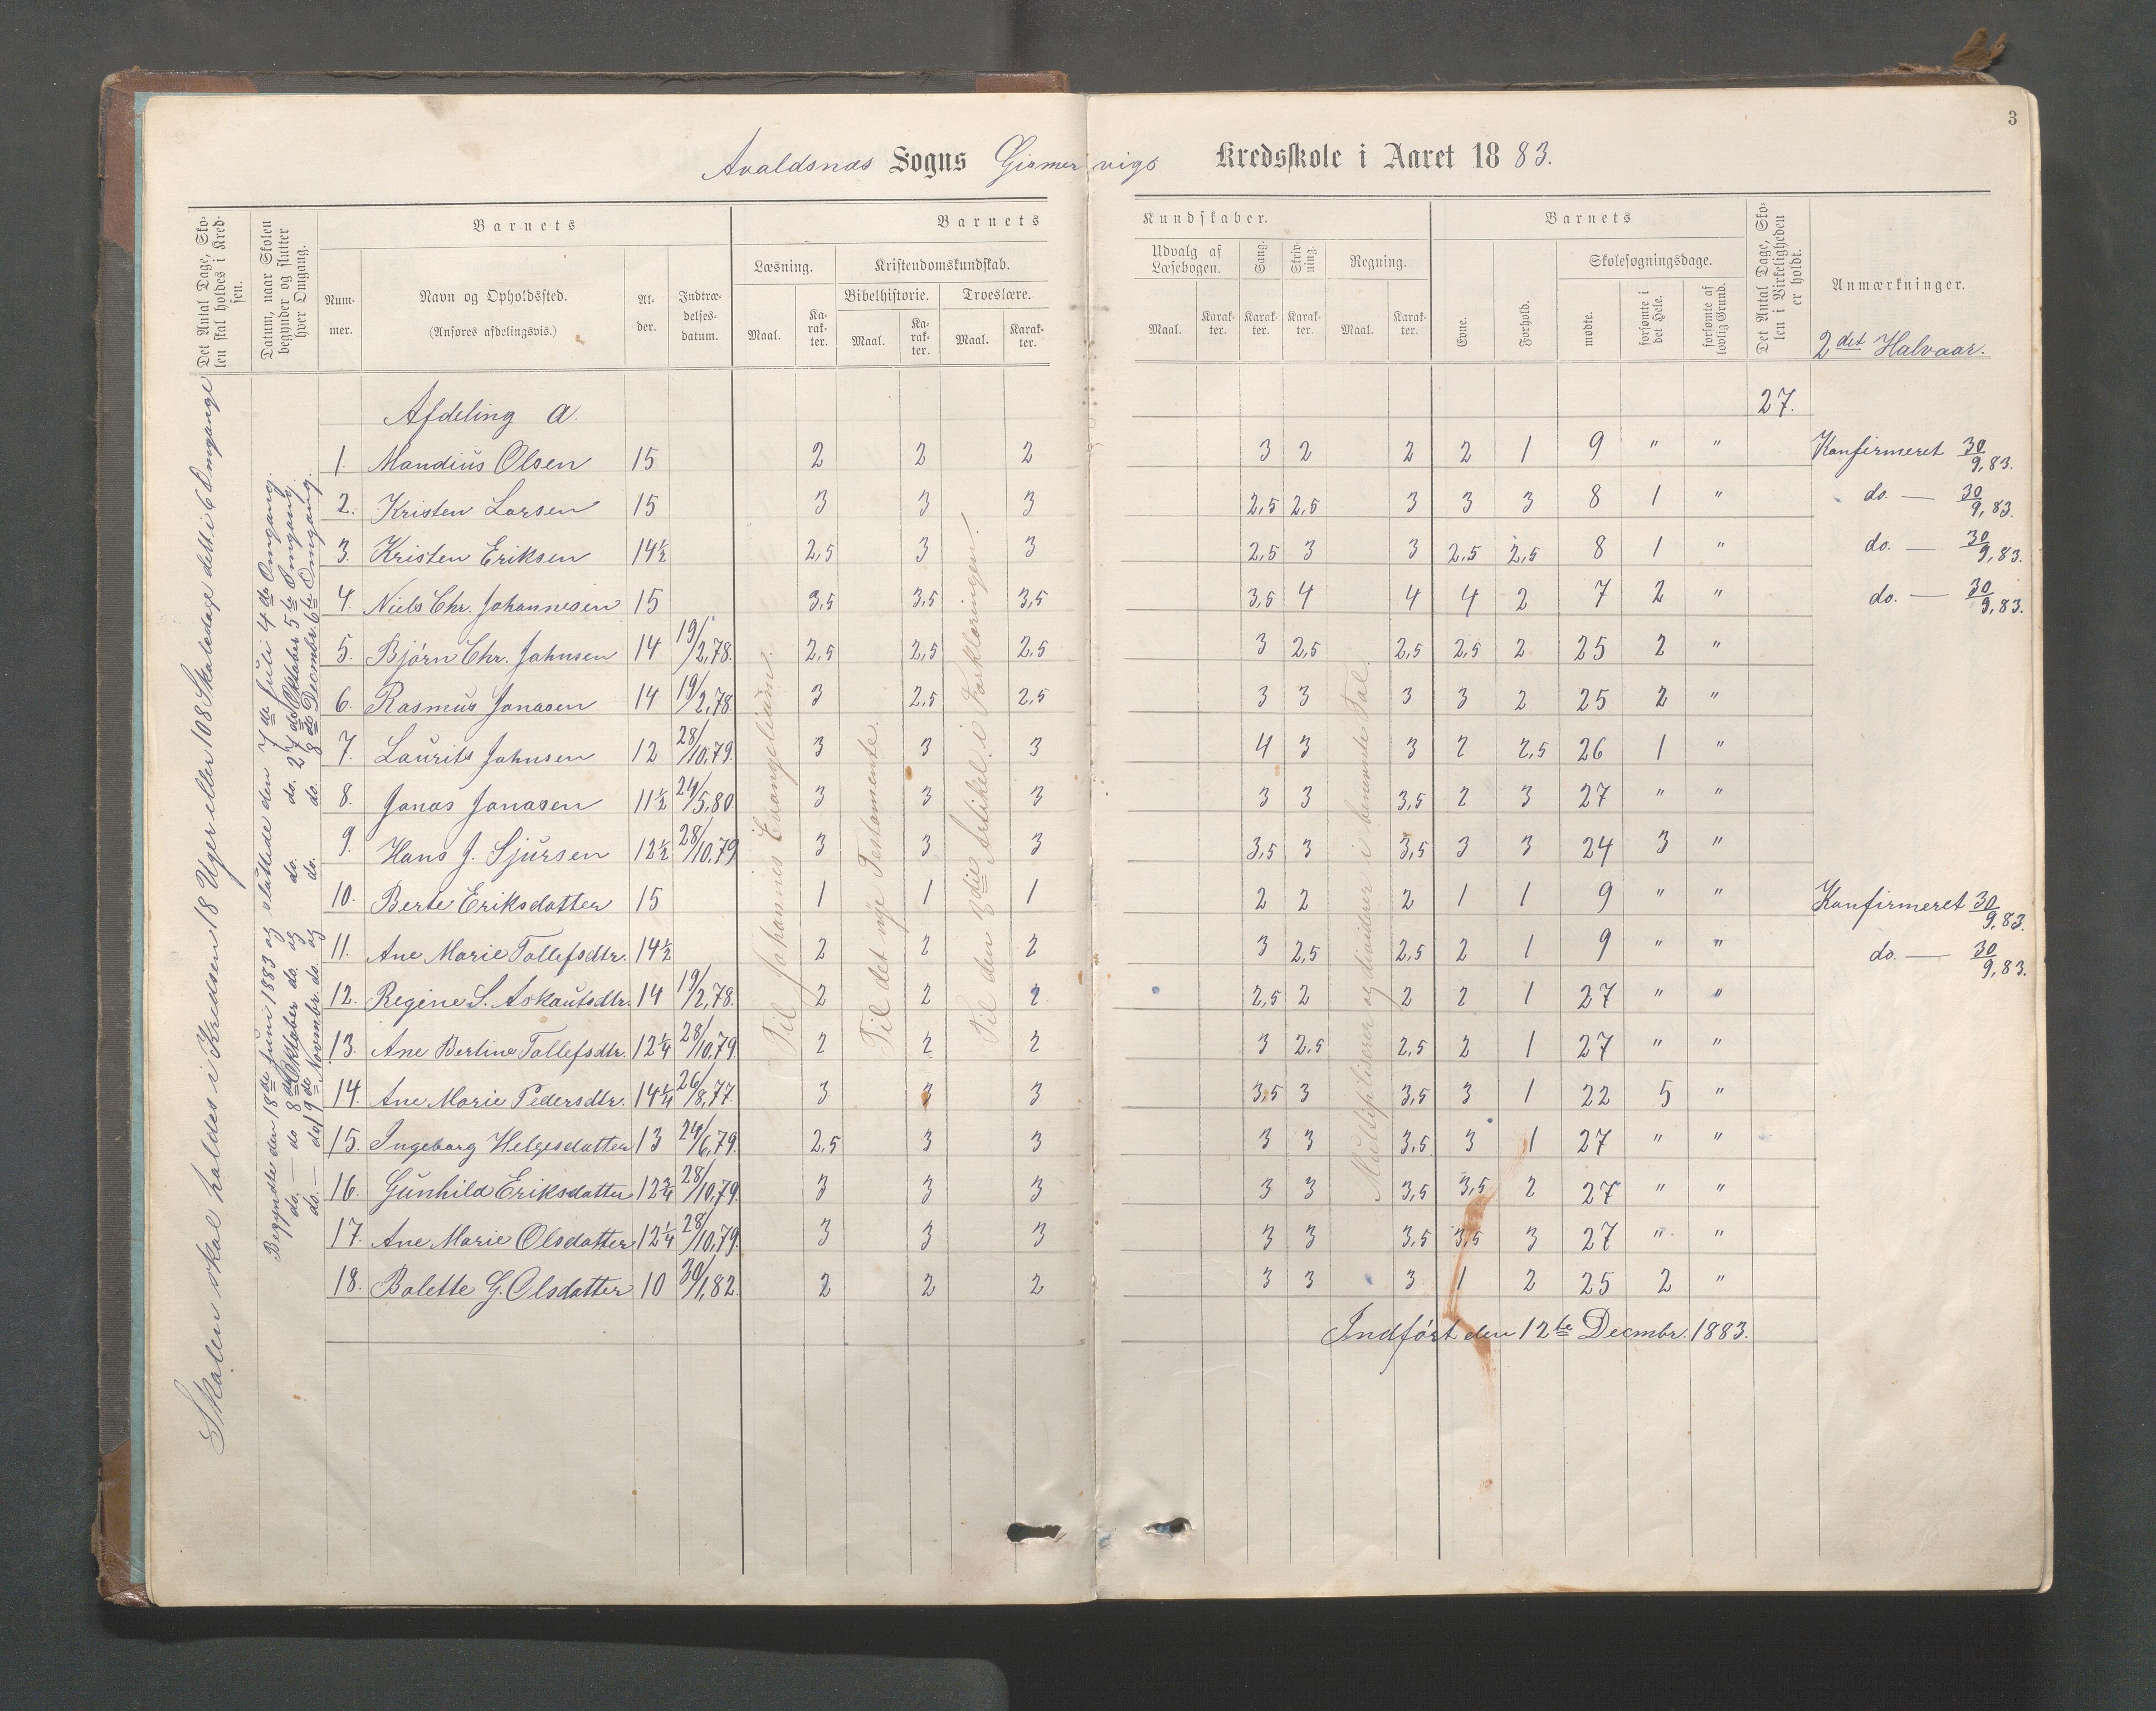 3
Avaldsnæs Sogns Gismervigs Kredsskole i Aaret 1883.
Det Antal Dage, Skolen skal holdes i Kredsen.
Datum, naar Skolen begynder og slutter hver Omgang.
Barnets
Nummer.
Navn og Opholdssted.
(Anføres afdelingsvis.)
Alder.
Indtrædelsesdatum.
Barnets Kundskaber.
Læsning.
Maal.
Karakter.
Kristendomskundskab.
Bibelhistorie.
Maal.
Karakter.
Troeslære.
Maal.
Karakter.
Udvalg af Læsebogen.
Maal.
Karakter.
Sang.
Karakter.
Skrivning.
Karakter.
Regning.
Maal.
Karakter.
Barnets
Evne.
Forhold.
Skolesøgningsdage.
mødte.
forsømte i det Hele.
forsømte af lovlig Grund.
Det Antal Dage, Skolen i Virkeligheden er holdt.
Anmærkninger.
2det Halvaar.
Skolen skal holdes i Kredsen 18 Uger eller 108 Skoledage delt i 6 Omgange
Begyndte den 18de Juni 1883 og sluttede den 7de Juli 4de Omgang.
do. — do 8de Oktober do. og do. 27de Oktober 5te Omgang.
do. — do 19de Novmbr. do. og do. 8de Decembr. 6te Omgang.
Til Johannes Evangelium.
Til det nye Testamente.
Til den 3die Artikel i Forklaringen.
Multipliserer og dividerer i benævnte Tal.
Afdeling a. 27.
1. Mandius Olsen 15 2 2 2 3 2 2 2 1 9 " " Konfirmeret 30/9,83.
2. Kristen Larsen 15 3 3 3 2,5 2,5 3 3 3 8 1 " do. — 30/9,83.
3. Kristen Eriksen 14½ 2,5 3 3 2,5 3 3 2,5 2,5 8 1 " do. — 30/9,83.
4. Niels Chr. Johannesen 15 3,5 3,5 3,5 3,5 4 4 4 2 7 2 " do. — 30/9,83.
5. Bjørn Chr. Johnsen 14 19/2,78. 2,5 2,5 2,5 3 2,5 2,5 2,5 2 25 2 "
6. Rasmus Jonasen 14 19/2,78. 3 2,5 2,5 3 3 3 3 2 25 2 "
7. Laurits Johnsen 12 28/10,79. 3 3 3 4 3 3 2 2,5 26 1 "
8. Jonas Jonasen 11½ 24/5,80 3 3 3 3 3 3,5 2 3 27 " "
9. Hans J. Sjursen 12½ 28/10,79 3 3 3 3,5 3 3,5 3 3 24 3 "
10. Berte Eriksdatter 15 1 1 1 2 2 2 1 1 9 " " Konfirmeret 30/9,83.
11. Ane Marie Tollefsdtr. 14½ 2 2 2 3 2,5 2,5 2 1 9 " " do. — 30/9,83.
12. Regine S. Askautsdtr. 14 19/2,78. 2 2 2 2,5 2 2 2 1 27 " "
13. Ane Bertine Tollefsdtr. 12¼ 28/10,79. 2 2 2 3 2,5 2,5 2 1 27 " "
14. Ane Marie Pedersdtr. 14¼ 26/8,77. 3 3 3 3,5 3 3,5 3 1 22 5 "
15. Ingeborg Helgesdatter 13 24/6,79. 2,5 3 3 3 3 3,5 3 1 27 " "
16. Gunhild Eriksdatter 12¾ 28/10,79. 3 3 3 3 3 3,5 3,5 2 27 " "
17. Ane Marie Olsdatter 12¼ 28/10,79. 3 3 3 3 3 3,5 3,5 3 27 " "
18. Bolette G. Olsdatter 10 30/1,82. 2 2 2 3 3 3 1 2 25 2 "
Indført den 12te Decmbr. 1883.